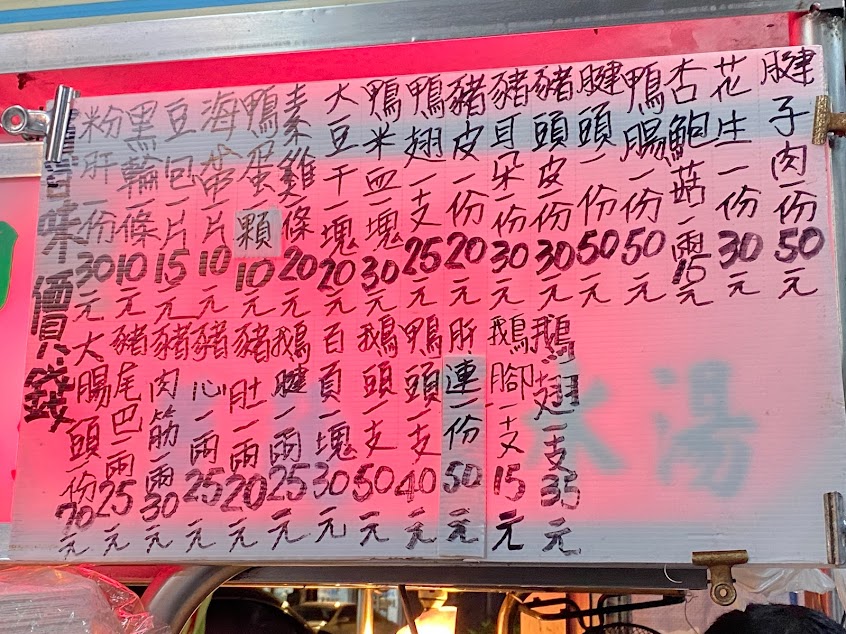 味價錢
粉肝一份30元
黑輪一條10元
豆包一片15元
海帶一片10元
鴨蛋一顆10元
素雞一條20元
大豆干一塊20元
鴨米血一塊30元
鴨翅一支25元
豬皮一份20元
豬耳朵一份30元
豬頭皮一份30元
腱頭一份50元
鴨腸一份50元
杏鮑菇一兩15元
花生一份30元
腱子肉一份50元
大腸頭一份70元
豬尾巴一兩25元
豬肉筋一兩30元
豬心一兩25元
豬肚一兩20元
鵝腱一兩25元
百頁一塊30元
鵝頭一支50元
鴨頭一支40元
肝連一份50元
鵝腳一支15元
鵝翅一支35元
湯